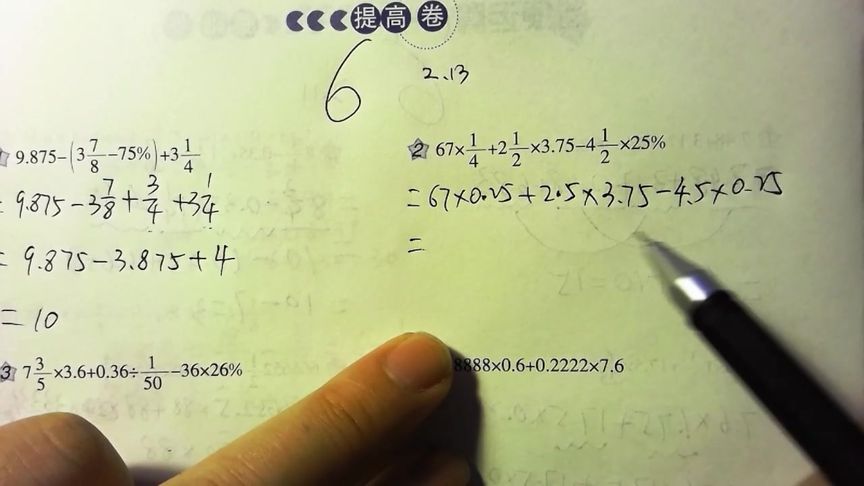 提高卷
6
2.13
1 9.875-(3 7/8-75%)+3 1/4
= 9.875-3 7/8+3/4+3 1/4
= 9.875-3.875+4
= 10
2 67×1/4+2 1/2×3.75-4 1/2×25%
=67×0.25+2.5×3.75-4.5×0.25
=
3 7 3/5×3.6+0.36÷1/50-36×26%
8888×0.6+0.2222×7.6